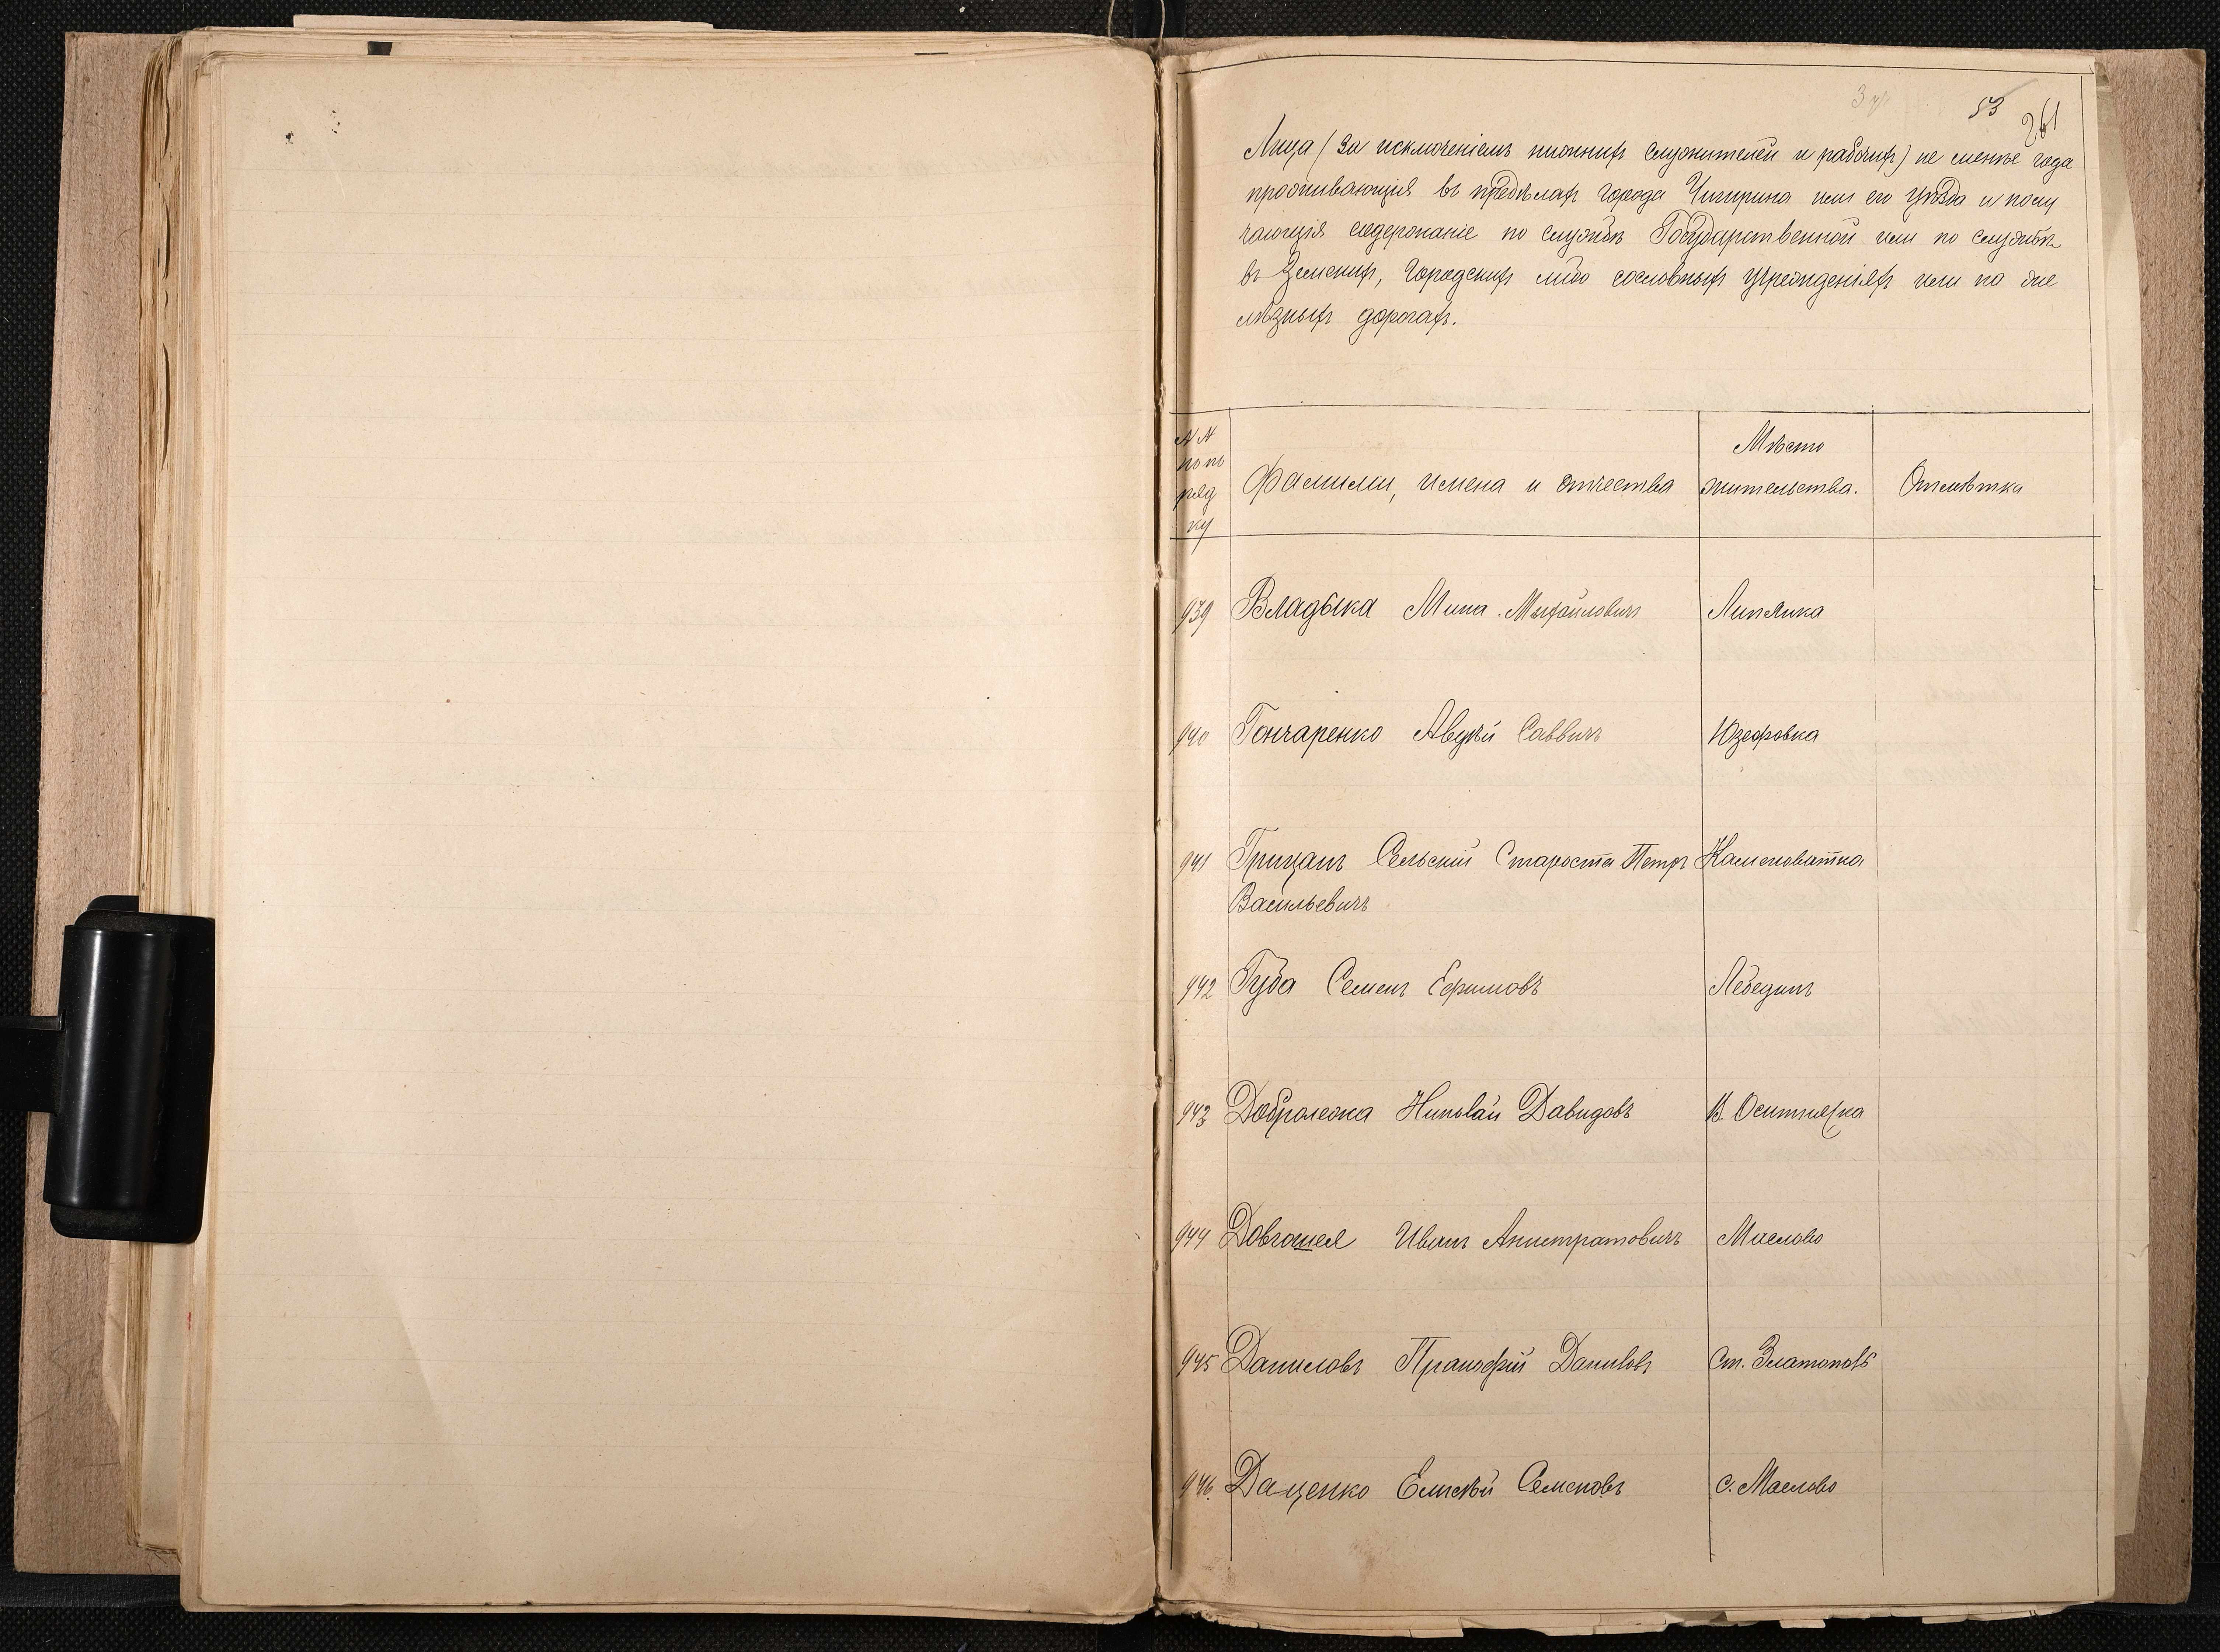 53
261
Лица (за исключеніемъ нижнихъ служителей и рабочихъ) не менѣе года
проживающія въ предѣлахъ города Чигирина или его уѣзда и полу
чающія содержаніе по службѣ Государственной или по службѣ
въ Земскихъ, Городскихъ либо сословныхъ учрежденіяхъ или на же
лѣзныхъ дорогахъ.
NN по по ряд ку
Фамиліи, имена и отчества
Мѣсто жительства.
Отмѣтка
939 Владыка Мина Михайловичъ Липянка
940 Гончаренко Авдѣй Саввичъ Юзефовка
941 Грицанъ Сельскій Староста Петръ Каменоватка
Васильевичъ
942 Губа Семенъ Ефимовъ Лебединъ
943 Доброежка Николай Давидовъ В. Оситняжка
944 Довгошея Иванъ Анистратовичъ Маслово
945 Даниловъ Пракофій Даниловъ Ст. Златополь
946. Даценко Елисѣй Семеновъ с. Маслово